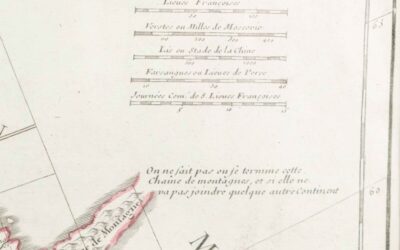 Lieues Françoises
Verstes ou Milles de Moscovie
Lis ou Stade de la Chine
Farsangues ou Lieues de Perse
Journées Com.ͤ de 8. Lieues Françoises
5 10 15
On ne sait pas ou se termine cette
Chaine de montagnes, et si elle ne
va pas joindre quelque autre Continent
de Montagne
65
60
M